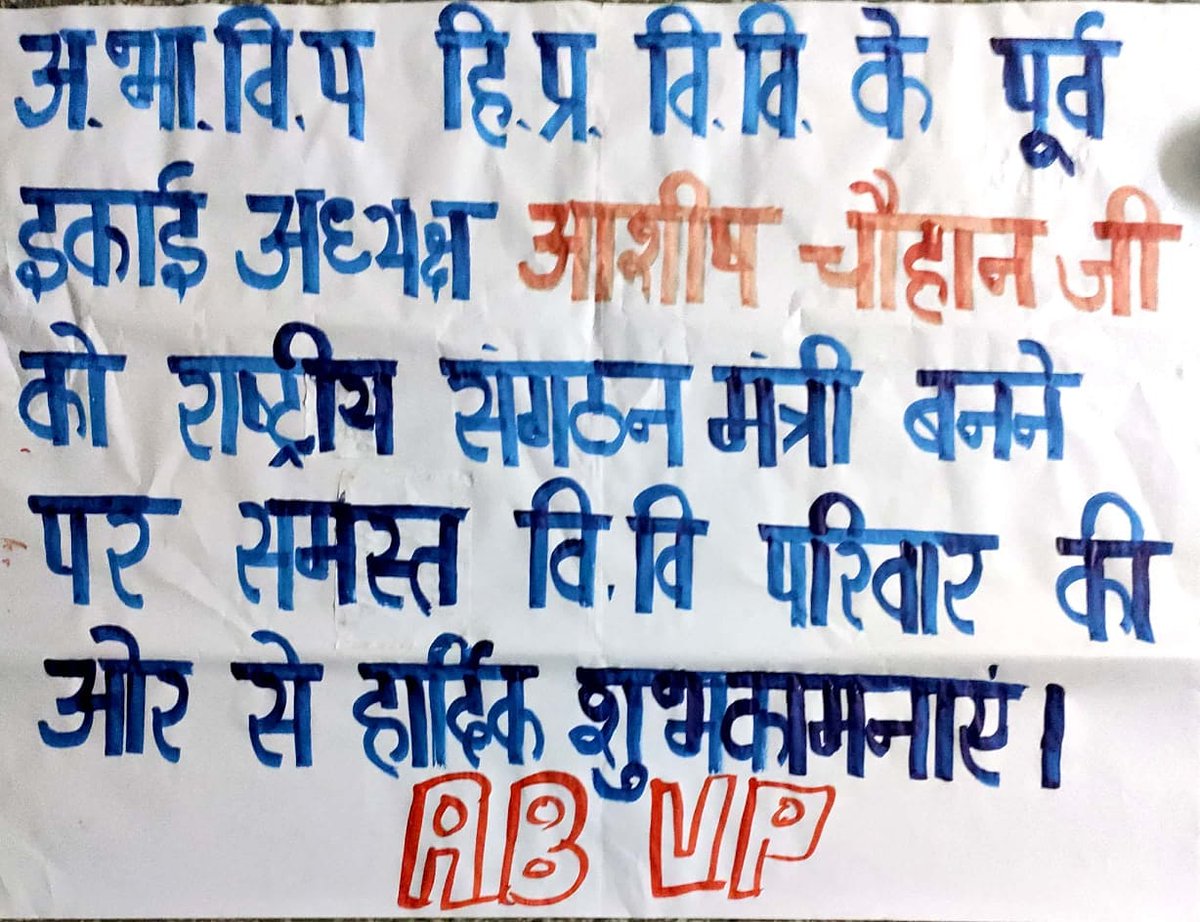 अ.भा.वि.प हि.प्र. वि.वि. के पूर्व
इकाई अध्यक्ष आशीष चौहान जी
को राष्ट्रीय संगठन मंत्री बनने
पर समस्त वि.वि परिवार की
ओर से हार्दिक शुभकामनाएं।
ABVP